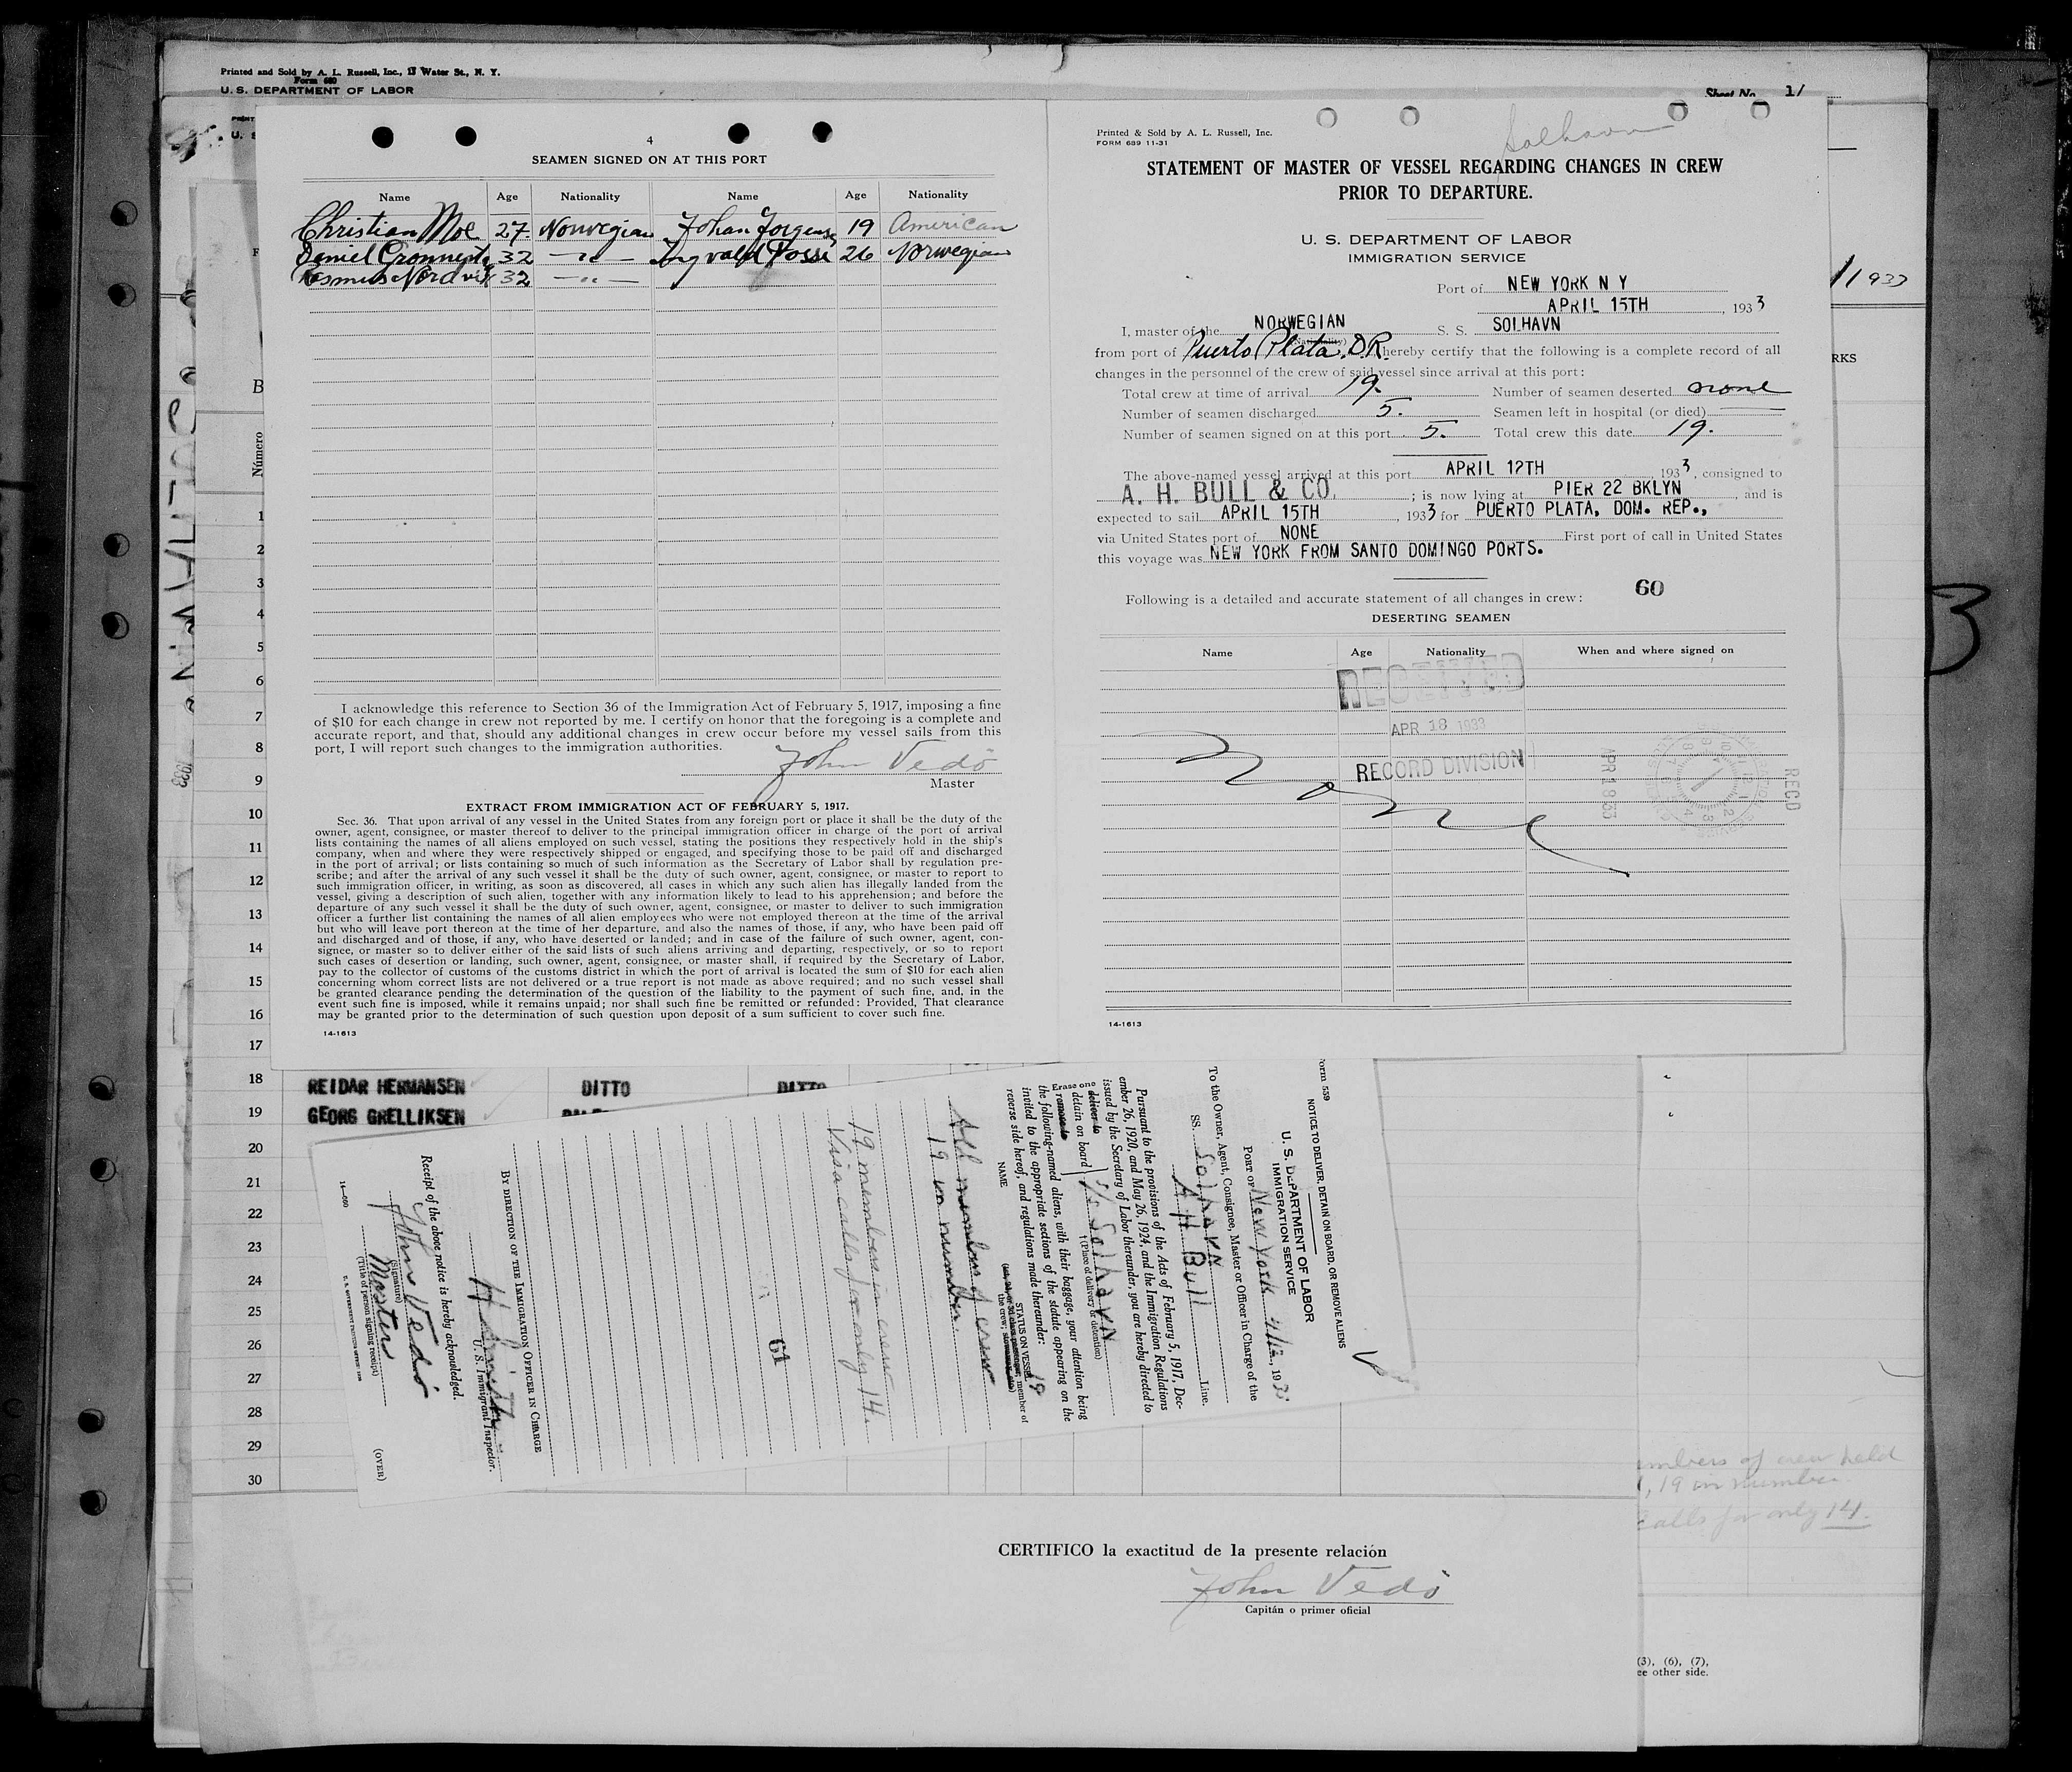 Printed and Sold by A. L. Russell, Inc., 17 Water St., N. Y.
Form 680
U. S. DEPARTMENT OF LABOR
Sheet No. 1/
4
SEAMEN SIGNED ON AT THIS PORT
Name Age Nationality Name Age Nationality
Christian Moe 27 Norwegian Johan Jorgens 19 American
32 — " — Ingvald 26 Norwegian
32 — " —
I acknowledge this reference to Section 36 of the Immigration Act of February 5, 1917, imposing a fine
of $10 for each change in crew not reported by me. I certify on honor that the foregoing is a complete and
accurate report, and that, should any additional changes in crew occur before my vessel sails from this
port, I will report such changes to the immigration authorities.
John Vedö
Master
EXTRACT FROM IMMIGRATION ACT OF FEBRUARY 5, 1917.
Sec. 36. That upon arrival of any vessel in the United States from any foreign port or place it shall be the duty of the
owner, agent, consignee, or master thereof to deliver to the principal immigration officer in charge of the port of arrival
lists containing the names of all aliens employed on such vessel, stating the positions they respectively hold in the ship's
company, when and where they were respectively shipped or engaged, and specifying those to be paid off and discharged
in the port of arrival; or lists containing so much of such information as the Secretary of Labor shall by regulation pre-
scribe; and after the arrival of any such vessel it shall be the duty of such owner, agent, consignee, or master to report to
such immigration officer, in writing, as soon as discovered, all cases in which any such alien has illegally landed from the
vessel, giving a description of such alien, together with any information likely to lead to his apprehension; and before the
departure of any such vessel it shall be the duty of such owner, agent, consignee, or master to deliver to such immigration
officer a further list containing the names of all alien employees who were not employed thereon at the time of the arrival
but who will leave port thereon at the time of her departure, and also the names of those, if any, who have been paid off
and discharged and of those, if any, who have deserted or landed; and in case of the failure of such owner, agent, con-
signee, or master so to deliver either of the said lists of such aliens arriving and departing, respectively, or so to report
such cases of desertion or landing, such owner, agent, consignee, or master shall, if required by the Secretary of Labor,
pay to the collector of customs of the customs district in which the port of arrival is located the sum of $10 for each alien
concerning whom correct lists are not delivered or a true report is not made as above required; and no such vessel shall
be granted clearance pending the determination of the question of the liability to the payment of such fine, and, in the
event such fine is imposed, while it remains unpaid; nor shall such fine be remitted or refunded: Provided, That clearance
may be granted prior to the determination of such question upon deposit of a sum sufficient to cover such fine.
14-1613
Printed & Sold by A. L. Russell, Inc.
FORM 689 11-31
Solhavn
STATEMENT OF MASTER OF VESSEL REGARDING CHANGES IN CREW
PRIOR TO DEPARTURE.
U. S. DEPARTMENT OF LABOR
IMMIGRATION SERVICE
Port of NEW YORK N Y
APRIL 15TH, 1933
I, master of the NORWEGIAN S. S. SOLHAVN
(Nationality)
from port of Puerto Plata, D.R. hereby certify that the following is a complete record of all
changes in the personnel of the crew of said vessel since arrival at this port:
Total crew at time of arrival 19. Number of seamen deserted none
Number of seamen discharged 5. Seamen left in hospital (or died) —
Number of seamen signed on at this port 5. Total crew this date 19.
The above-named vessel arrived at this port APRIL 12TH 1933, consigned to
A. H. BULL & CO. ; is now lying at PIER 22 BKLYN, and is
expected to sail APRIL 15TH, 1933 for PUERTO PLATA, DOM. REP.,
via United States port of NONE First port of call in United States
this voyage was NEW YORK FROM SANTO DOMINGO PORTS.
60
Following is a detailed and accurate statement of all changes in crew:
DESERTING SEAMEN
Name Age Nationality When and where signed on
RECEIVED
APR 18 1933
RECORD DIVISION
None
APR 18 33
RECD
14-1613
/1933
RKS
3
SOLHAVN
1933
B
Número
1
2
3
4
5
6
7
8
9
10
11
12
13
14
15
16
17
18 REIDAR HERMANSEN DITTO DITTO
19 GEORG GRELLIKSEN
20
21
22
23
24
25
26
27
28
29
30
Form 539
NOTICE TO DELIVER, DETAIN ON BOARD, OR REMOVE ALIENS
U. S. DEPARTMENT OF LABOR
IMMIGRATION SERVICE
PORT OF New York 4/12, 1933
To the Owner, Agent, Consignee, Master or Officer in Charge of the
SS. Solhavn
A H Bull Line.
Pursuant to the provisions of the Acts of February 5, 1917, Dec-
ember 26, 1920, and May 26, 1924, and the Immigration Regulations
issued by the Secretary of Labor thereunder, you are hereby directed to
Erase one
deliver to
detain on board
remove to
S/S Solhavn
(Place of delivery or detention)
the following-named aliens, with their baggage, your attention being
invited to the appropriate sections of the statute appearing on the
reverse side hereof, and regulations made thereunder:
NAME
STATUS ON VESSEL
19
All members of crew
19 in number.
19 members in crew
Visa calls for only 14.
61
BY DIRECTION OF THE IMMIGRATION OFFICER IN CHARGE
U. S. Immigrant Inspector.
Receipt of the above notice is hereby acknowledged.
John Vedö
(Signature)
Master
(Title of person signing receipt)
14—660
(OVER)
mbers of crew held
, 19 in number.
calls for only 14.
CERTIFICO la exactitud de la presente relación
John Vedö
Capitán o primer oficial
(3), (6), (7),
ee other side.